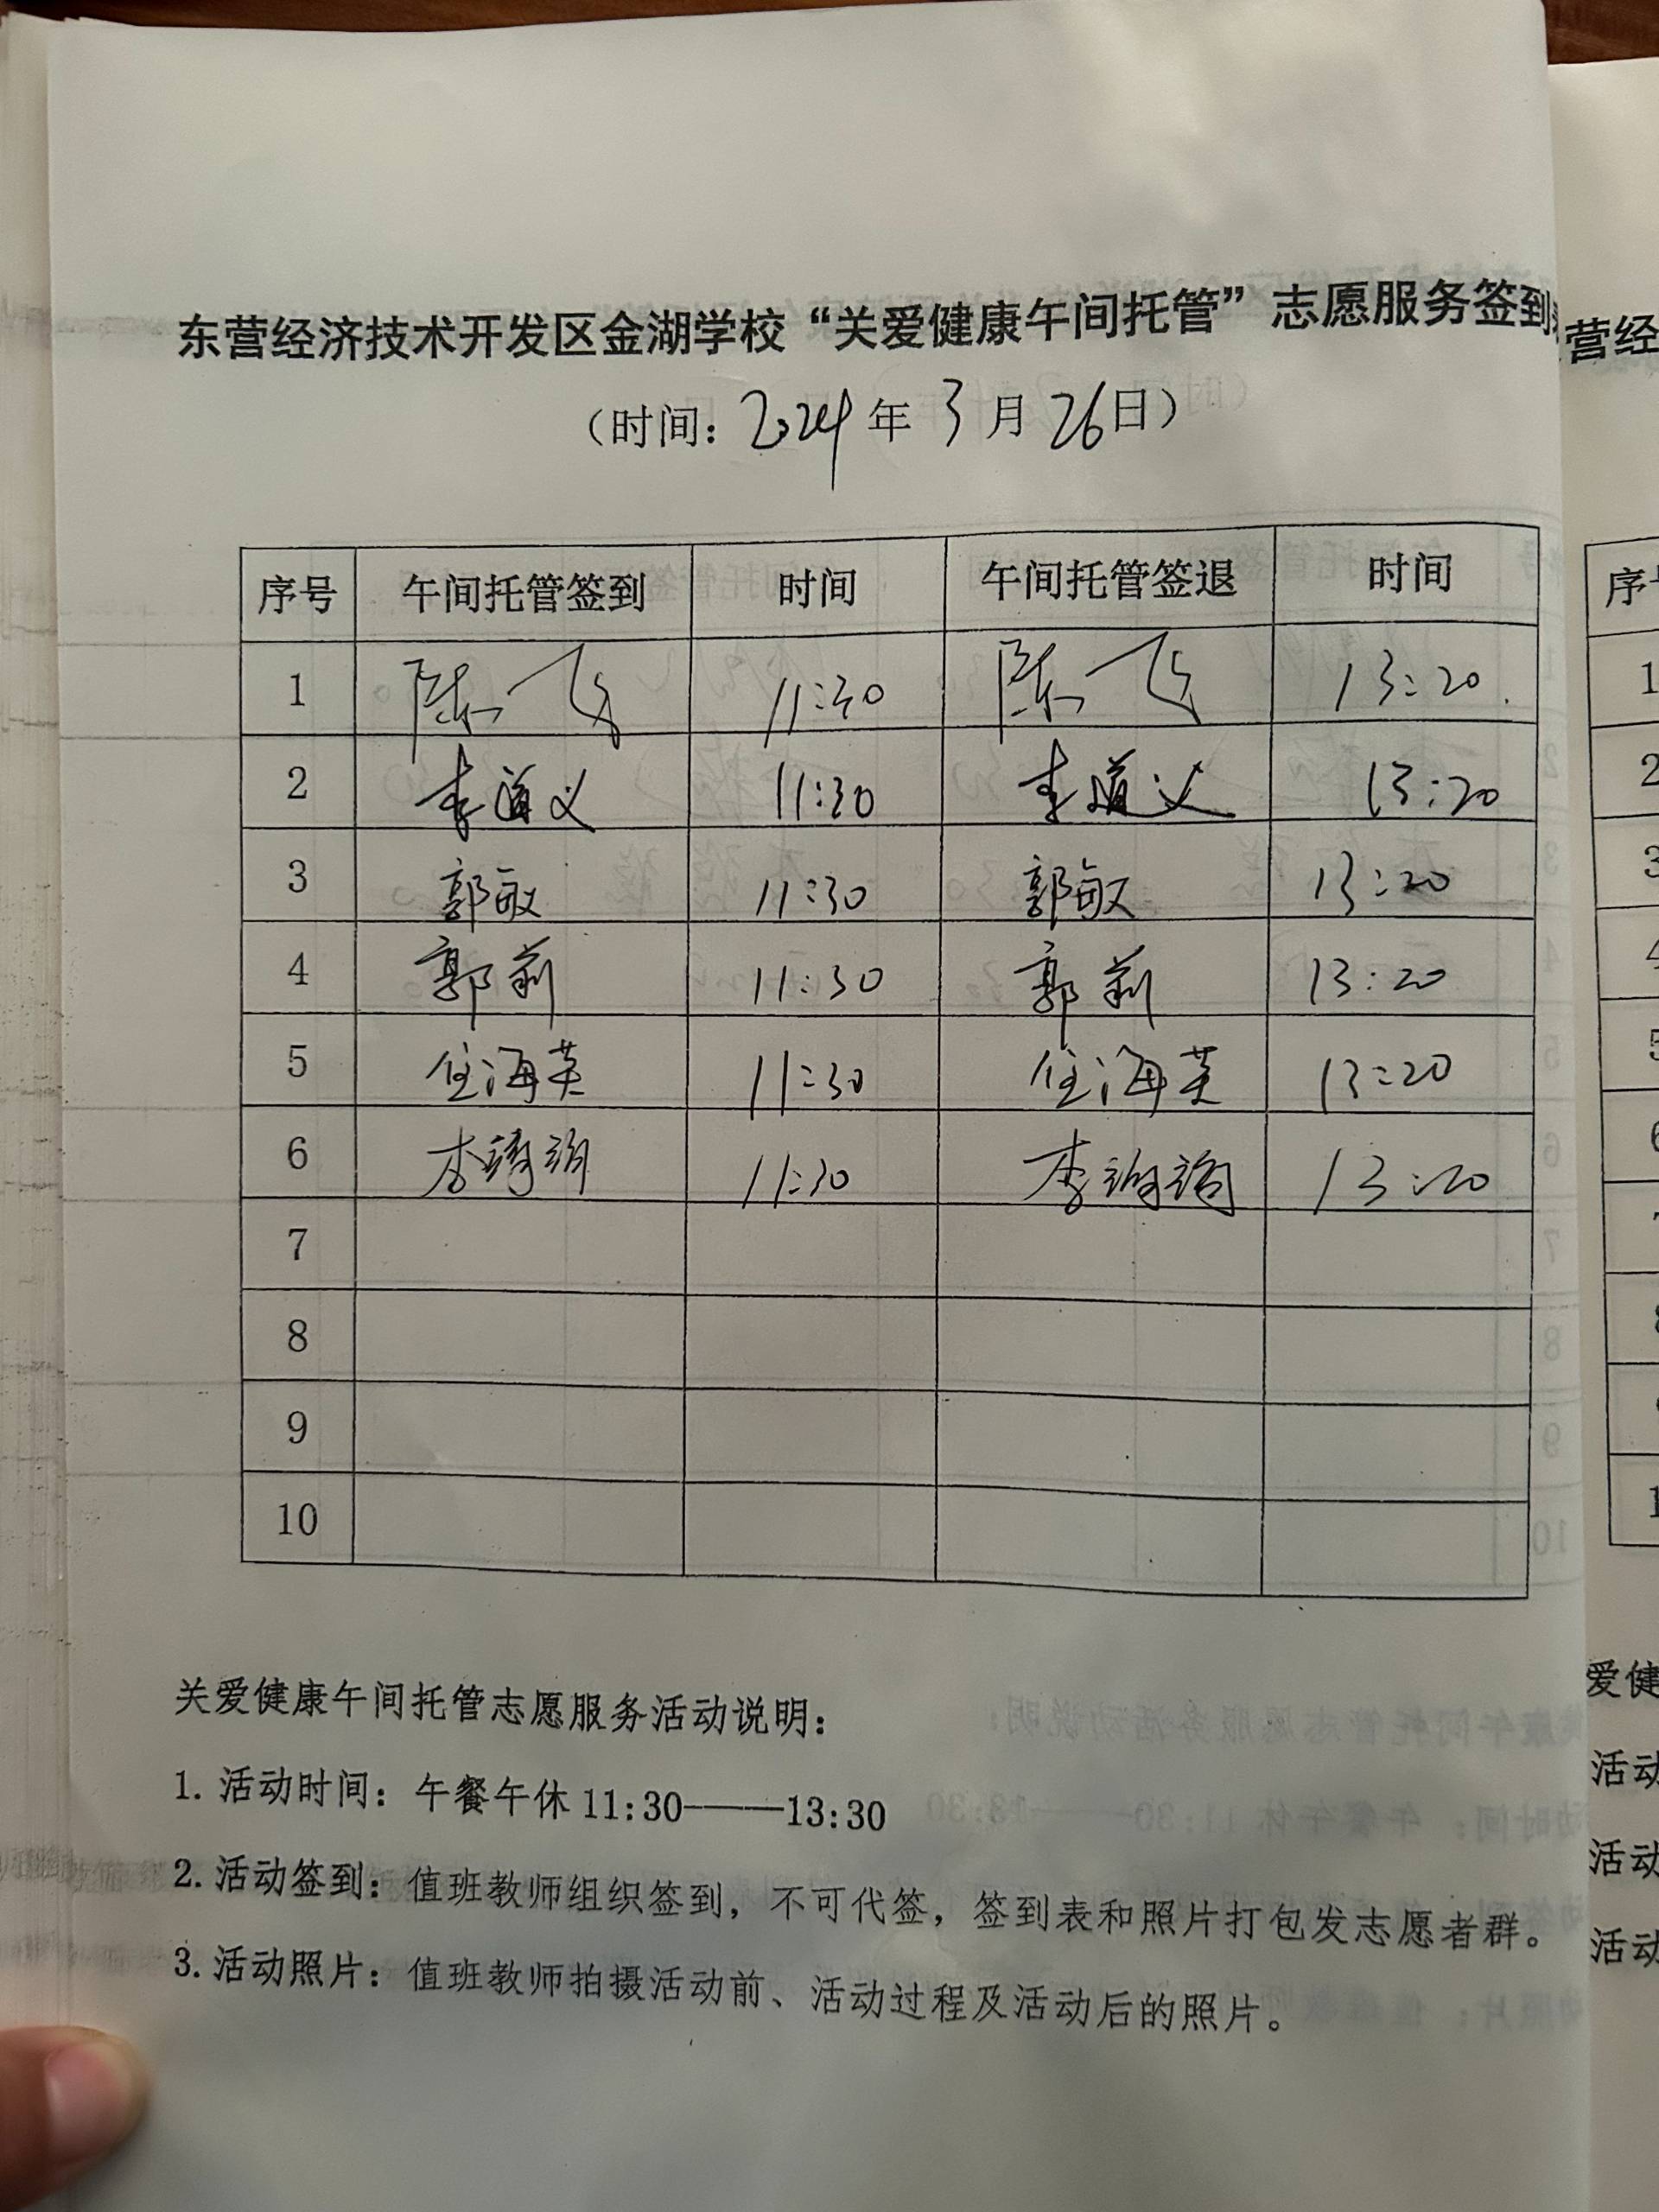 东营经济技术开发区金湖学校“关爱健康午间托管”志愿服务签到
（时间：2024年3月26日）
序号 午间托管签到 时间 午间托管签退 时间
1 陈飞 11:30 陈飞 13:20
2 李道义 11:30 李道义 13:20
3 郭敏 11:30 郭敏 13:20
4 郭莉 11:30 郭莉 13:20
5 任海英 11:30 任海英 13:20
6 李 11:30 李 13:20
7
8
9
10
关爱健康午间托管志愿服务活动说明：
1. 活动时间：午餐午休 11:30———13:30
2. 活动签到：值班教师组织签到，不可代签，签到表和照片打包发志愿者群。
3. 活动照片：值班教师拍摄活动前、活动过程及活动后的照片。
营经
序
1
2
3
4
5
6
爱健
活动
活动
活动